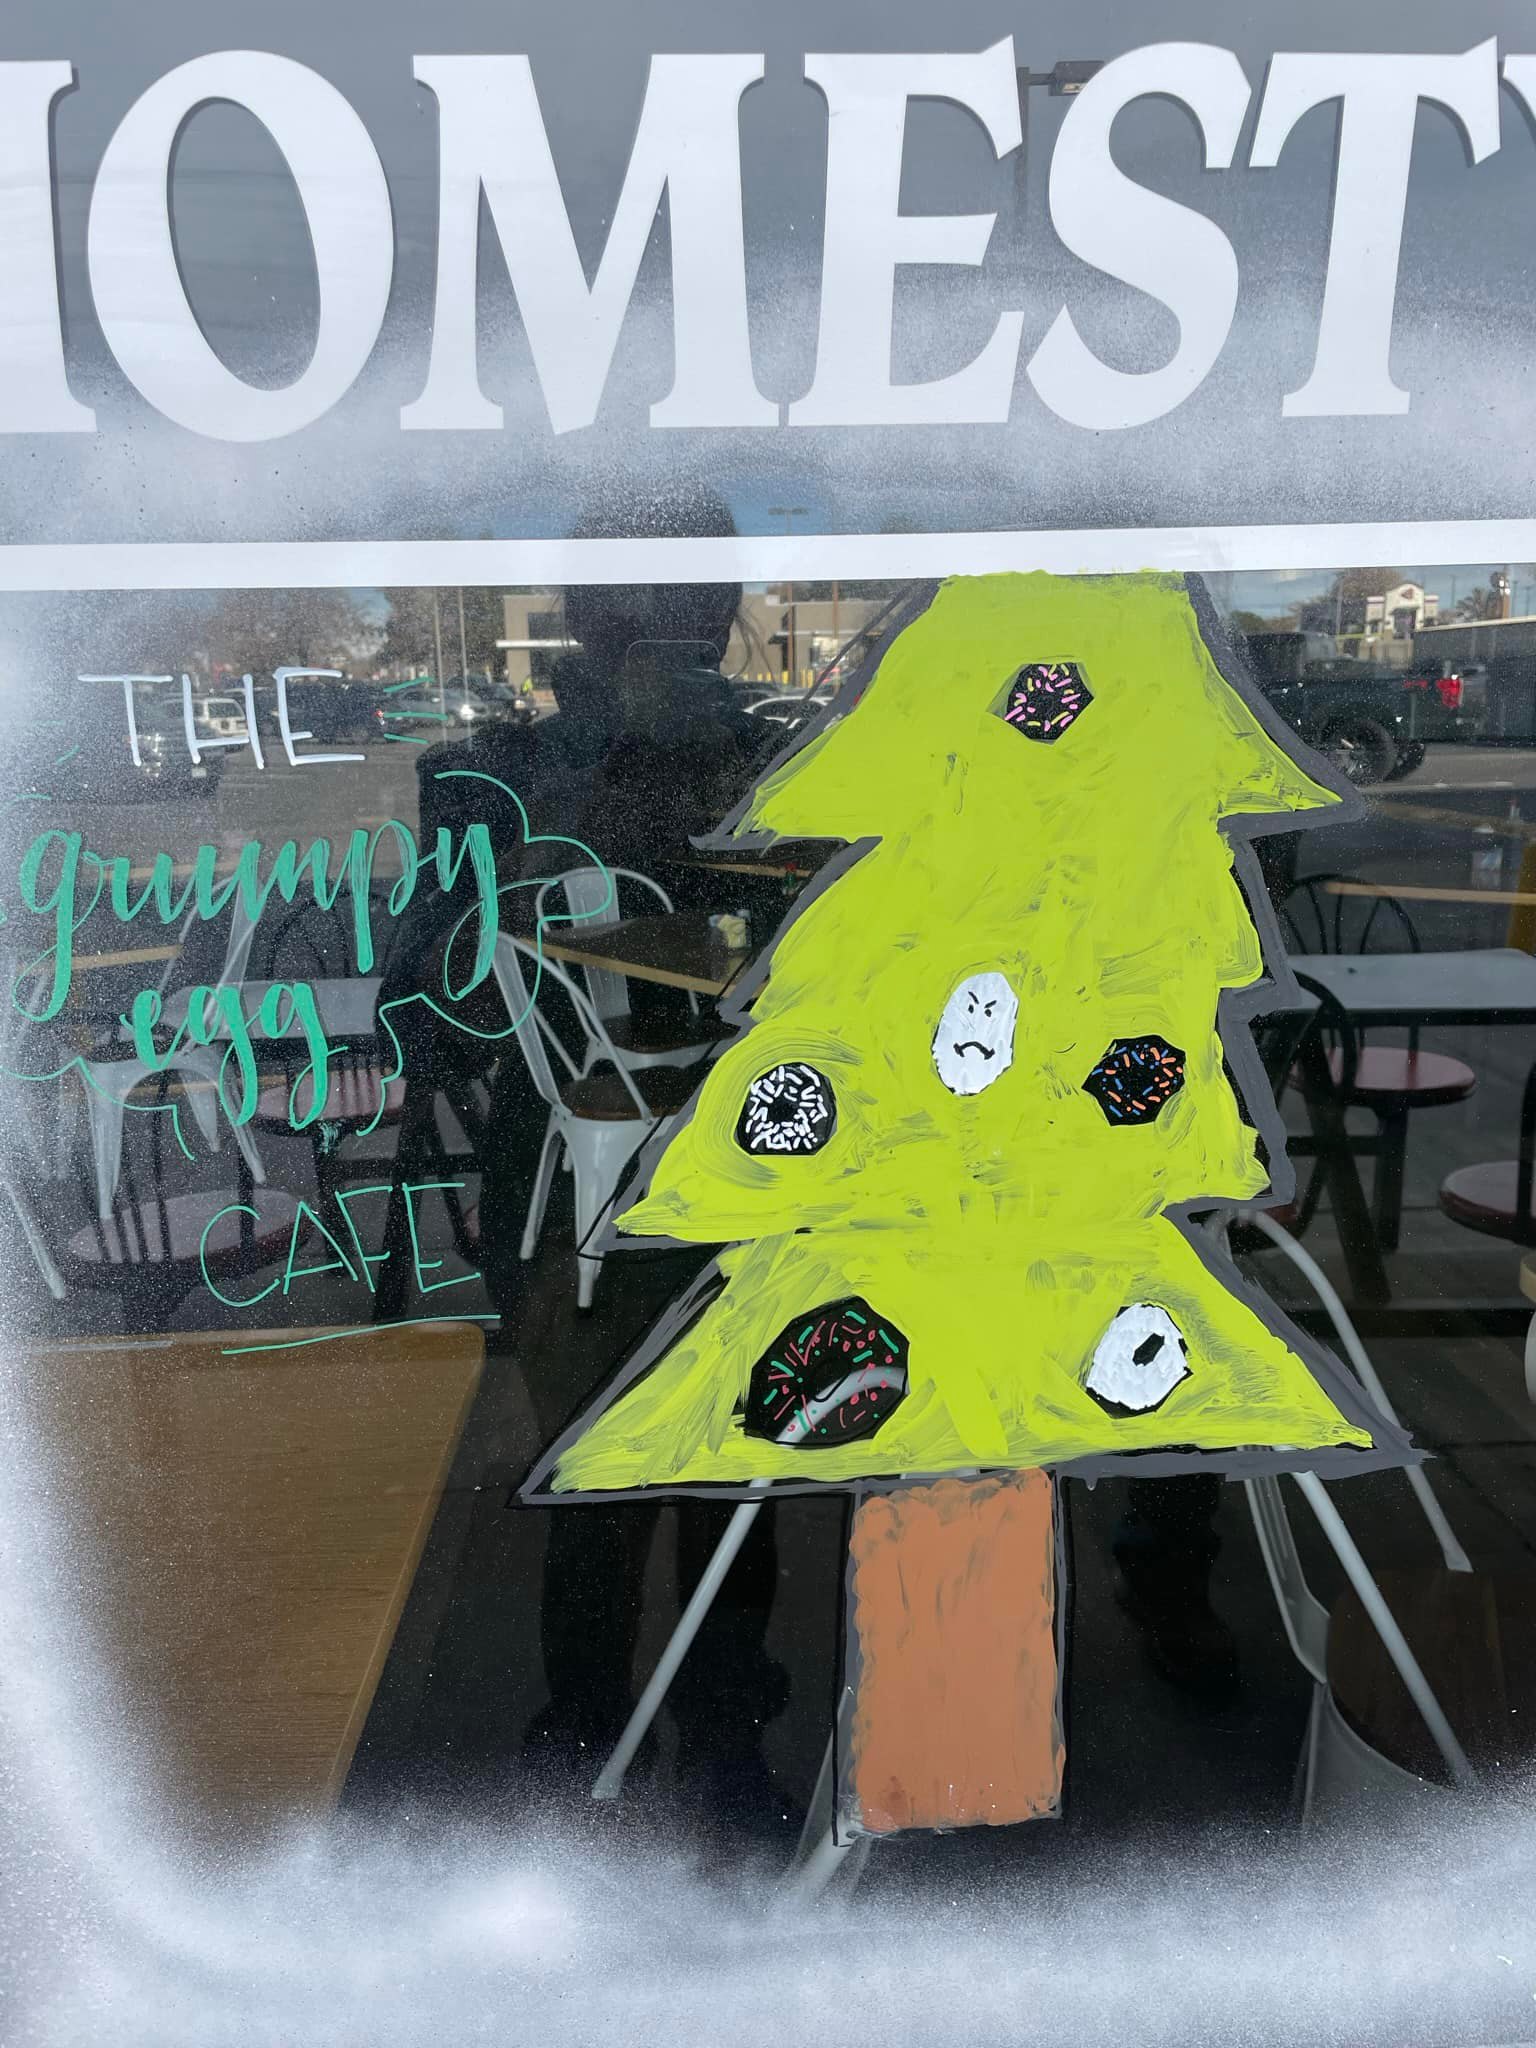 HOMESTY
THE
grumpy
egg
CAFE